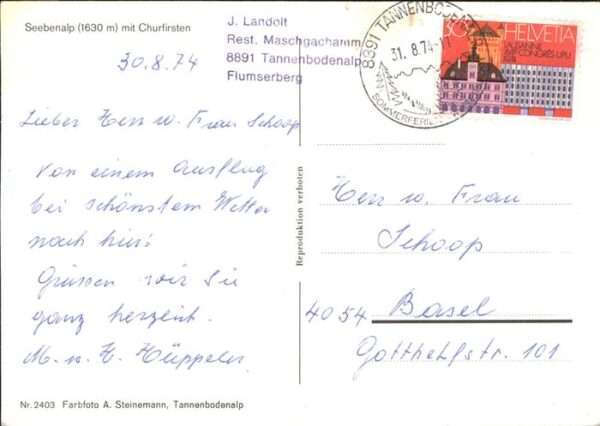 Seebenalp (1630 m) mit Churfirsten
J. Landolt
Rest. Maschgachamm
8891 Tannenbodenalp
Flumserberg
8891 TANNENBODEN
31. 8. 74
SOMMERFERIE
30
HELVETIA
LAUSANNE
CONGRÈS UPU
30.8.74
Lieber Herr u. Frau Schoop
Von einem Ausflug
bei schönstem Wetter
noch hier!
Grüssen wir Sie
ganz herzlich.
M. u. H. Hüppeler
Reproduktion verboten
Herr u. Frau
Schoop
4054 Basel
Gotthelfstr. 101
Nr. 2403 Farbfoto A. Steinemann, Tannenbodenalp